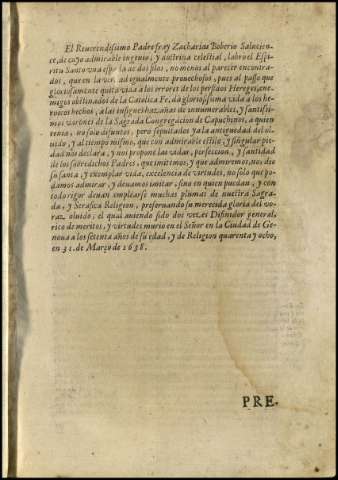 El Reuerendissimo Padre fray Zacharias Boberio Saluciense, de cuyo admirable ingenio, y doctrina celestial, labrò el Espi-
ritu Santo vna espada de dos filos, no menos al parecer encontra-
dos, que en la verdad igualmente prouechosos, pues al passo que
gloriosamente quita vida a los errores de los perfidos Hereges, ene-
migos obstinados de la Catolica Fe, da gloriosissima vida a los he-
roicos hechos, a las insignes hazañas de innumerables, y santissi-
mos varones de la Sagrada Congregacion de Capuchinos, a quien
tenia, no solo difuntos, pero sepultados ya la antiguedad del ol-
uido, y al tiempo mismo, que con admirable estilo, y singular pie-
dad nos declara, y nos propone las vidas, perfeccion, y santidad
de los sobredichos Padres, que imitemos, y que admiremos, nos dio
su santa, y exemplar vida, excelencia de virtudes, no solo que po-
damos admirar, y deuamos imitar, sino en quien puedan, y con
todo rigor deuan emplearse muchas plumas de nuestra Sagra-
da, y Serafica Religion, preseruando su merecida gloria del vo-
raz oluido, el qual auiendo sido dos vezes Difinidor general,
rico de meritos, y virtudes murio en el Señor en la Ciudad de Ge-
noua a los setenta años de su edad, y de Religion quarenta y ocho,
en 31. de Março de 1638.
PRE-